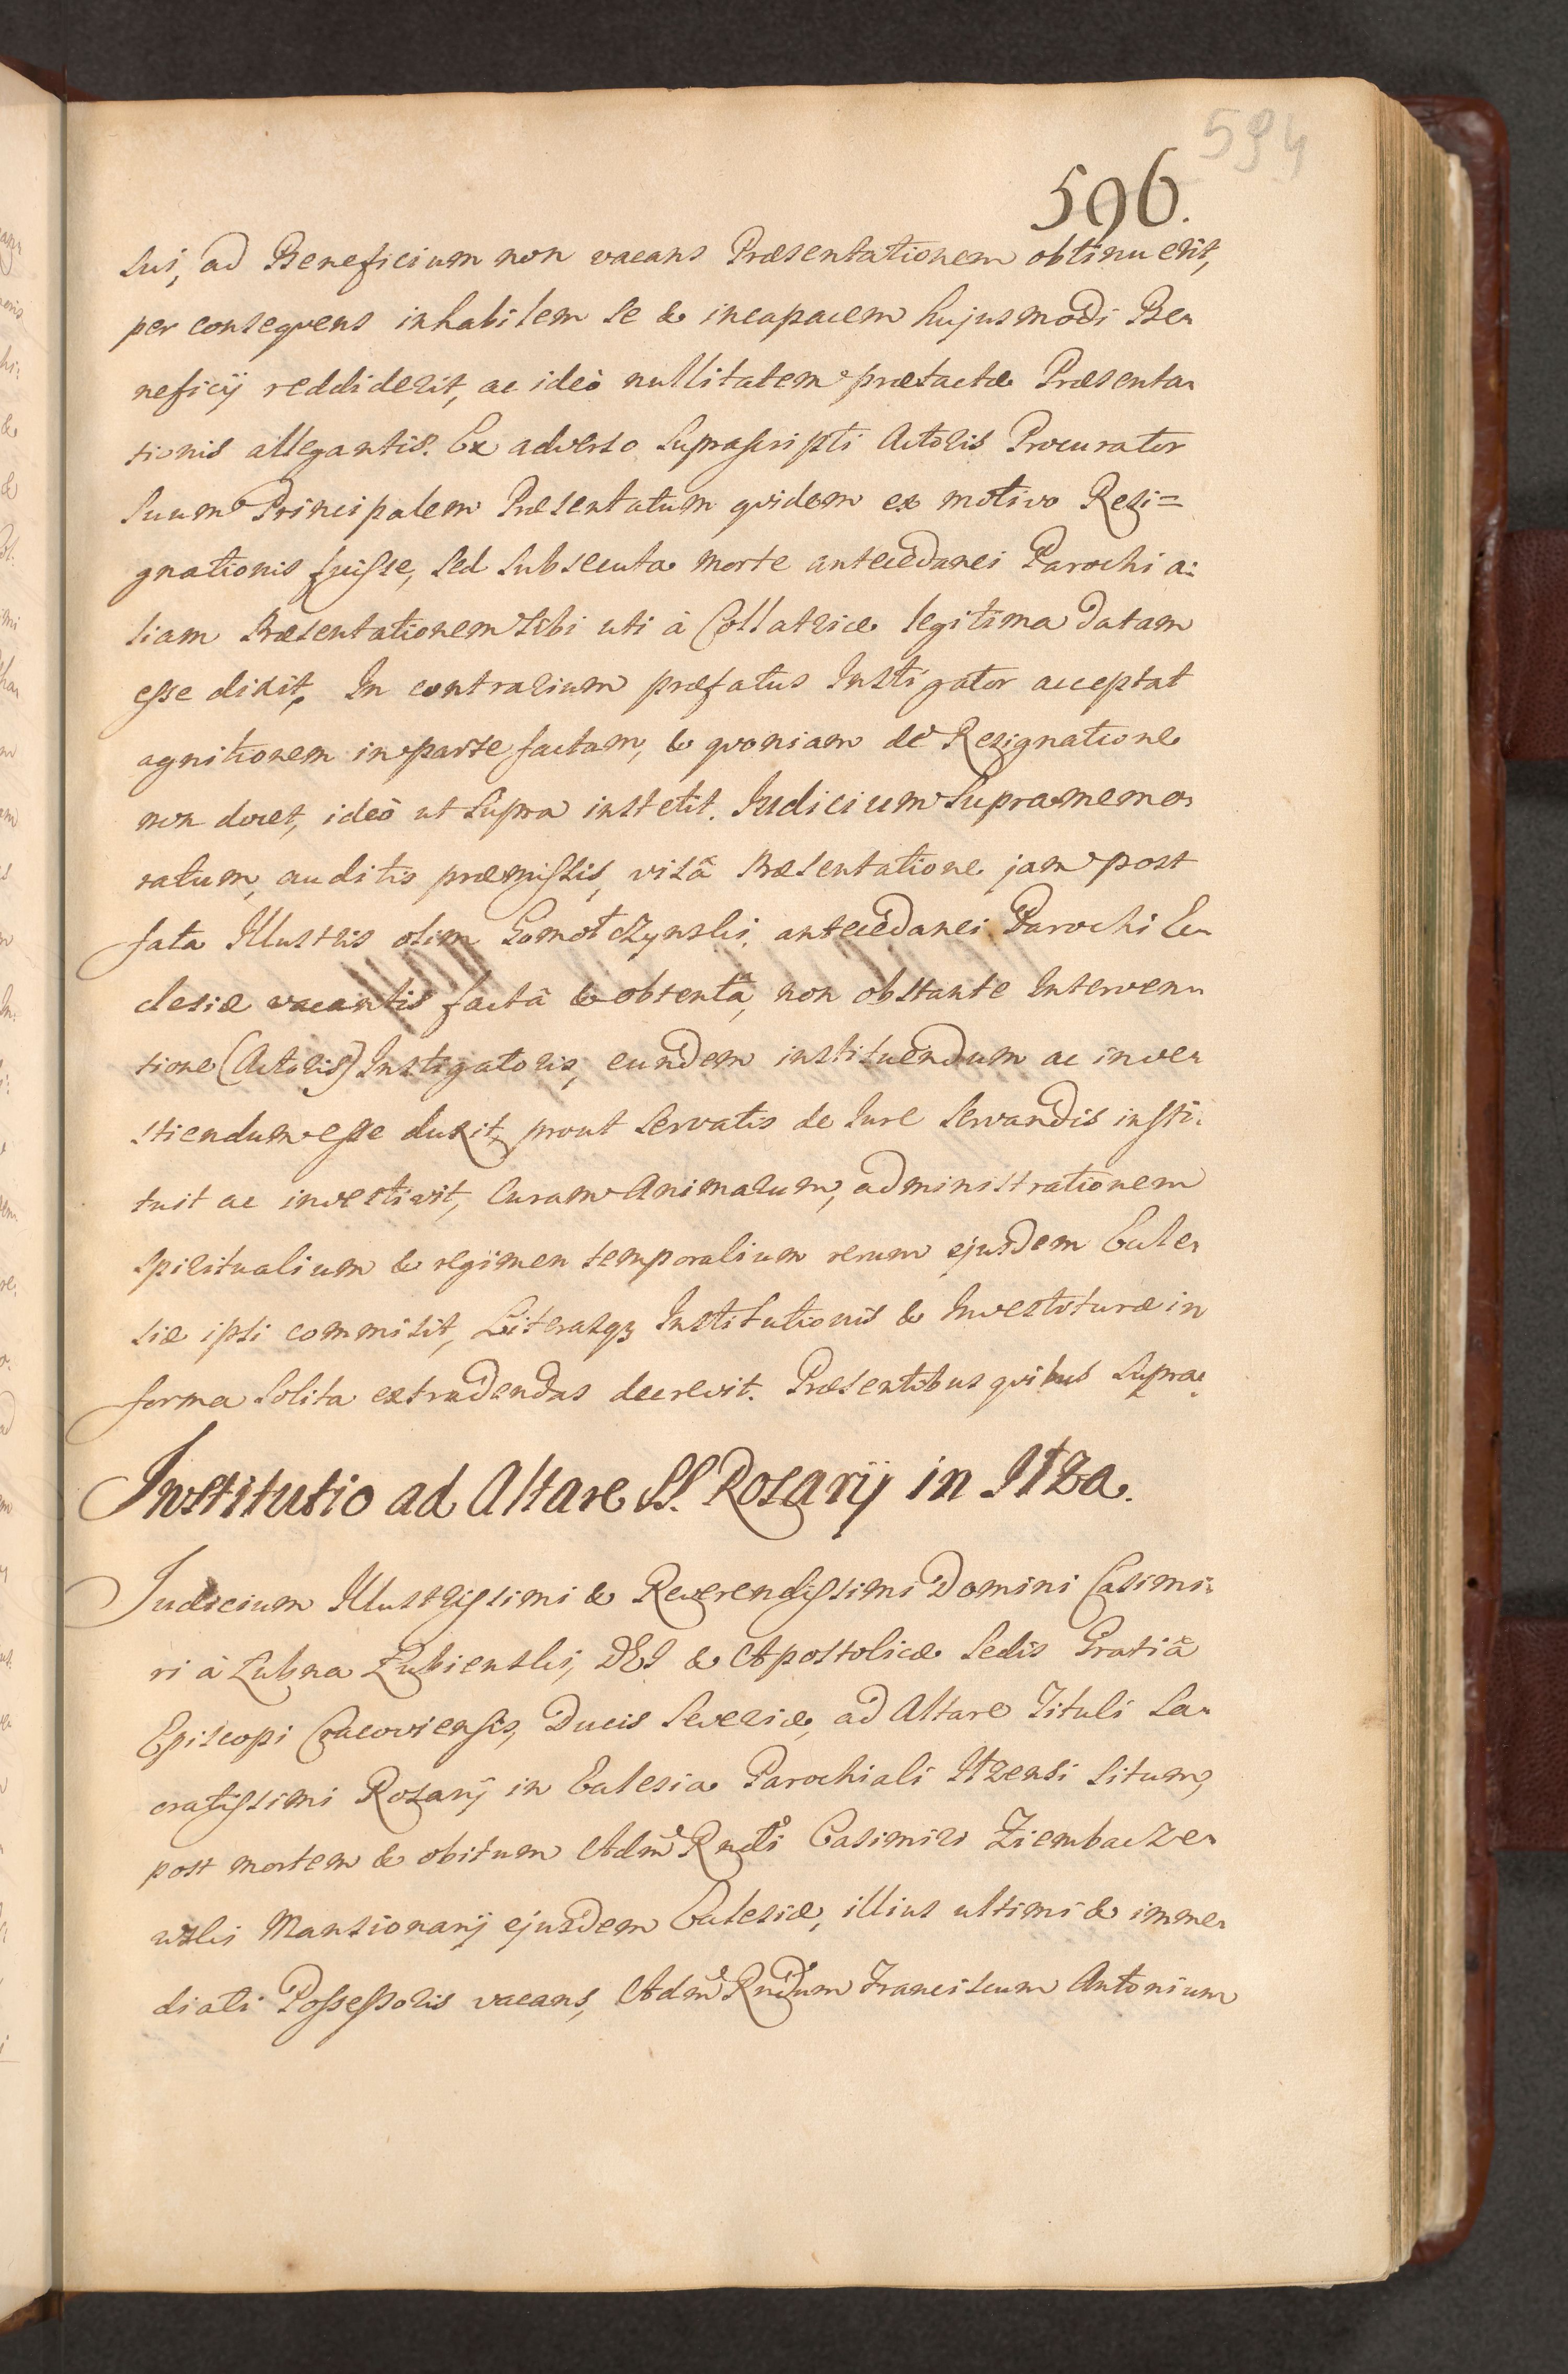 594
596.
sui, ad Beneficium non vacans Præsentationem obtinuerit,
per consequens inhabilem se & incapacem hujusmodi Be-
neficij reddiderit, ac ideò nullitatem prætactæ Præsenta-
tionis allegantis. Ex adverso suprascripti Actoris Procurator
suum Principalem Præsentatum quidem ex motivo Rezi=
gnationis fuisse, sed subsecuta morte antecedanei Parochi a-
liam Præsentationem sibi uti à Collatrice legitima datam
esse dixit, In contrarium præfatus Instigator acceptat
agnitionem in parte factam, & quoniam de Rezignatione
non docet, ideò ut supra institit. Iudicium supramemo-
ratum, auditis præmissis, visâ Præsentatione jam post
fata Illustris olim Gomołczynski, antecedanei Parochi Ec-
clesiæ vacantis factâ & obtentâ, non obstante Interven-
tione (Actoris) Instigatoris, eundem instituendum ac inve-
stiendum esse duxit, prout servatis de Iure servandis insti-
tuit ac investivit, Curam Animarum, administrationem
spiritualium & regimen temporalium rerum ejusdem Eccle-
siæ ipsi commisit, Literasq3 Institutionis & Investituræ in
forma solita extradendas decrevit. Præsentibus quibus supra.
Institutio ad Altare SS. Rosarij in Iłża.
Iudicium Illustrissimi & Reverendissimi Domini Casimi-
ri à Łubna Łubienski, DEI & Apostolicæ Sedis Gratiâ
Episcopi Cracoviensis, Ducis Severiæ, ad Altare Tituli Sa-
cratissimi Rosarij in Ecclesia Parochiali Iłzensi situm,
post mortem & obitum Adm Rndi Casimiri Ziembacze-
wski Mansionarij ejusdem Ecclesiæ, illius ultimi & imme-
diati Possessoris vacans, Adm Rndum Franciscum Antonium